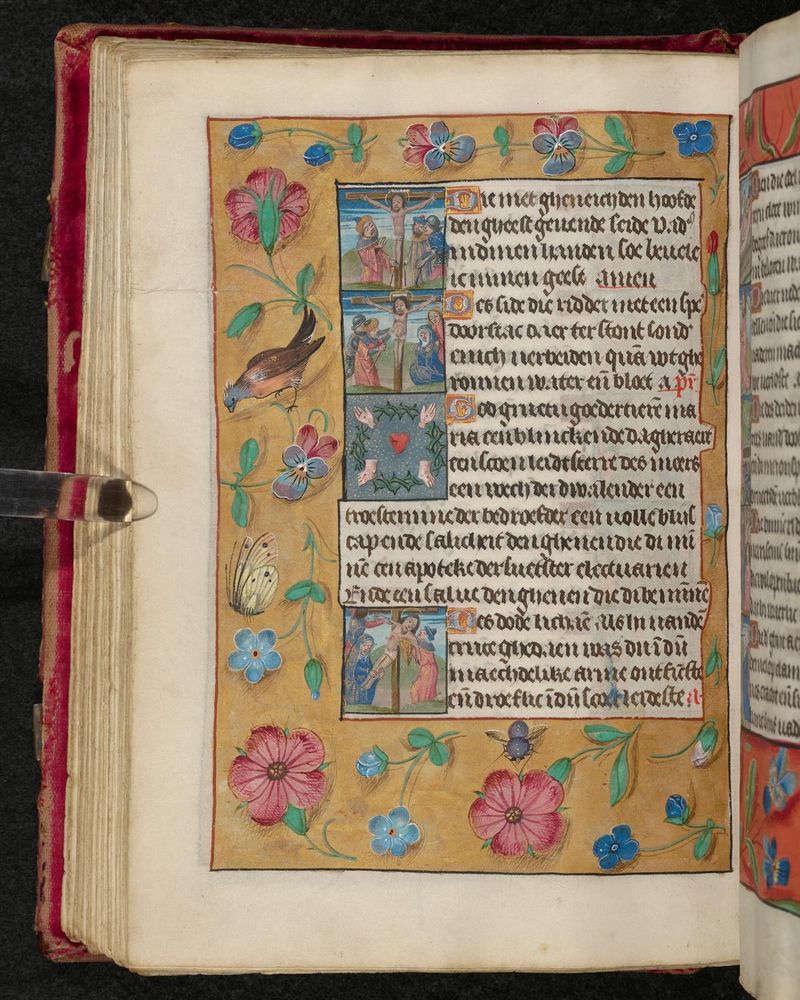 Die met gheneichden hoofde
den gheest gevende seide Vad'
in dinen handen soe bevele
ic minen geest amen
Des side die ridder met een spe'
doorstac daer ter stont sond'
enich verbeiden quā wt ghe
ronnen water eñ bloet a pr̄
God gruetu goedertierē ma
ria een blinckende dagheraet
een scoen leidtsterre des meers
een wech der dwalender een
troesterinne der bedroefder een volle blus
cap ende salicheit den ghenen die di mī
nē een apoteke der suetster electuarien
Ende een salue den ghenen die di beminnē
Des dode lichāe als in vandē
cruce ghedaen was dn̄ i dīj
maechdelike arme ontfīcste
eñ droeflic i dīj scoet leideste a